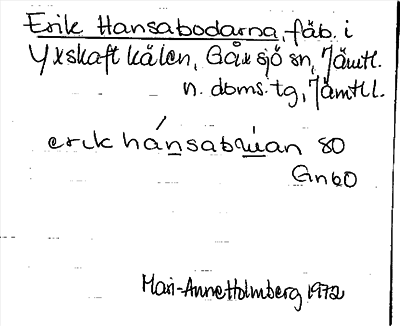 Erik Hansabodarna, fäb. i
Yxskaftkälen, Gåxsjö sn, Jämtl.
n. doms. tg, Jämtl l.
erik hánsabuan 80
Gnbo
Mari-Anne Holmberg 1972